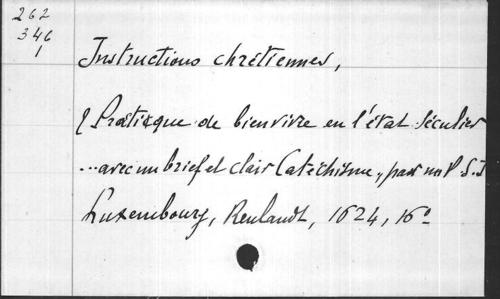 262
346
1
Instructions chrétiennes,
& Praticque de bien vivre en l'état séculier
... avec un brief et clair Catéchisme, par un P. S. J
Luxembourg, Reulandt, 1624, 16°